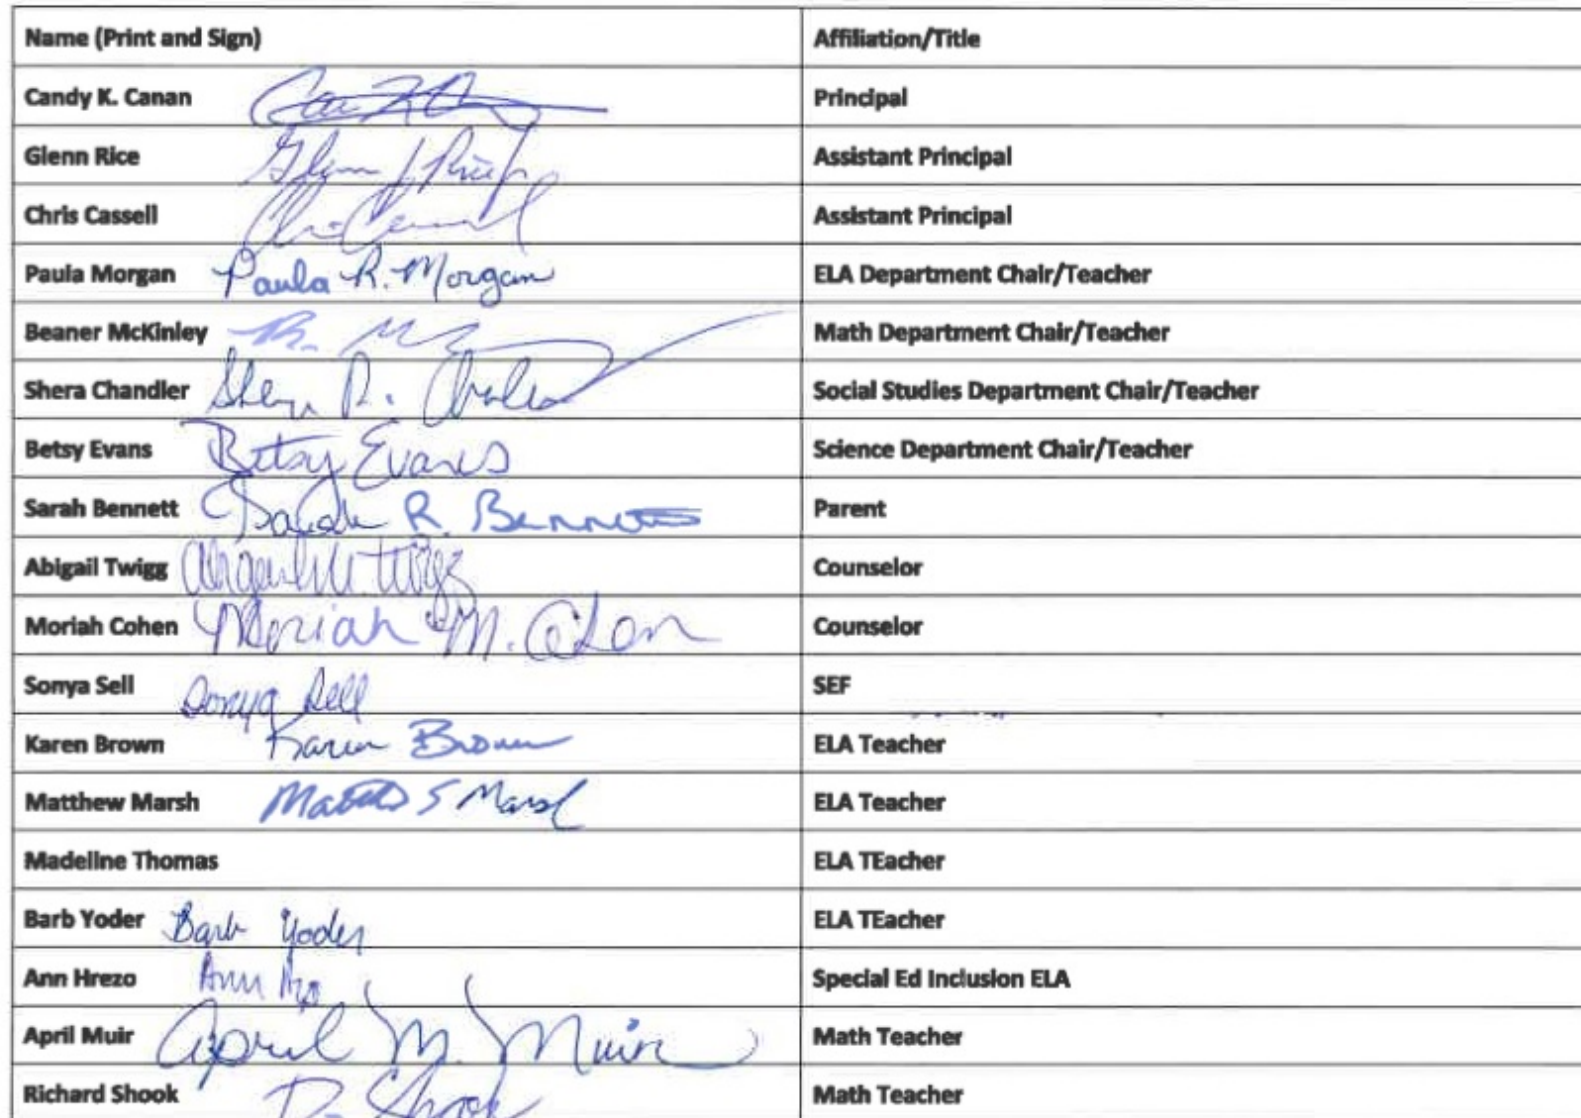 Name (Print and Sign) Affiliation/Title
Candy K. Canan Principal
Glenn Rice Glenn J Rice Assistant Principal
Chris Cassell Assistant Principal
Paula Morgan Paula R. Morgan ELA Department Chair/Teacher
Beaner McKinley Math Department Chair/Teacher
Shera Chandler Social Studies Department Chair/Teacher
Betsy Evans Betsy Evans Science Department Chair/Teacher
Sarah Bennett Sarah R. Bennett Parent
Abigail Twigg Abigail M. Twigg Counselor
Moriah Cohen Moriah M. Cohen Counselor
Sonya Sell Sonya Sell SEF
Karen Brown Karen Brown ELA Teacher
Matthew Marsh Matthew S Marsh ELA Teacher
Madeline Thomas ELA TEacher
Barb Yoder Barb Yoder ELA TEacher
Ann Hrezo Ann Special Ed Inclusion ELA
April Muir April M. Muir Math Teacher
Richard Shook R. Shook Math Teacher